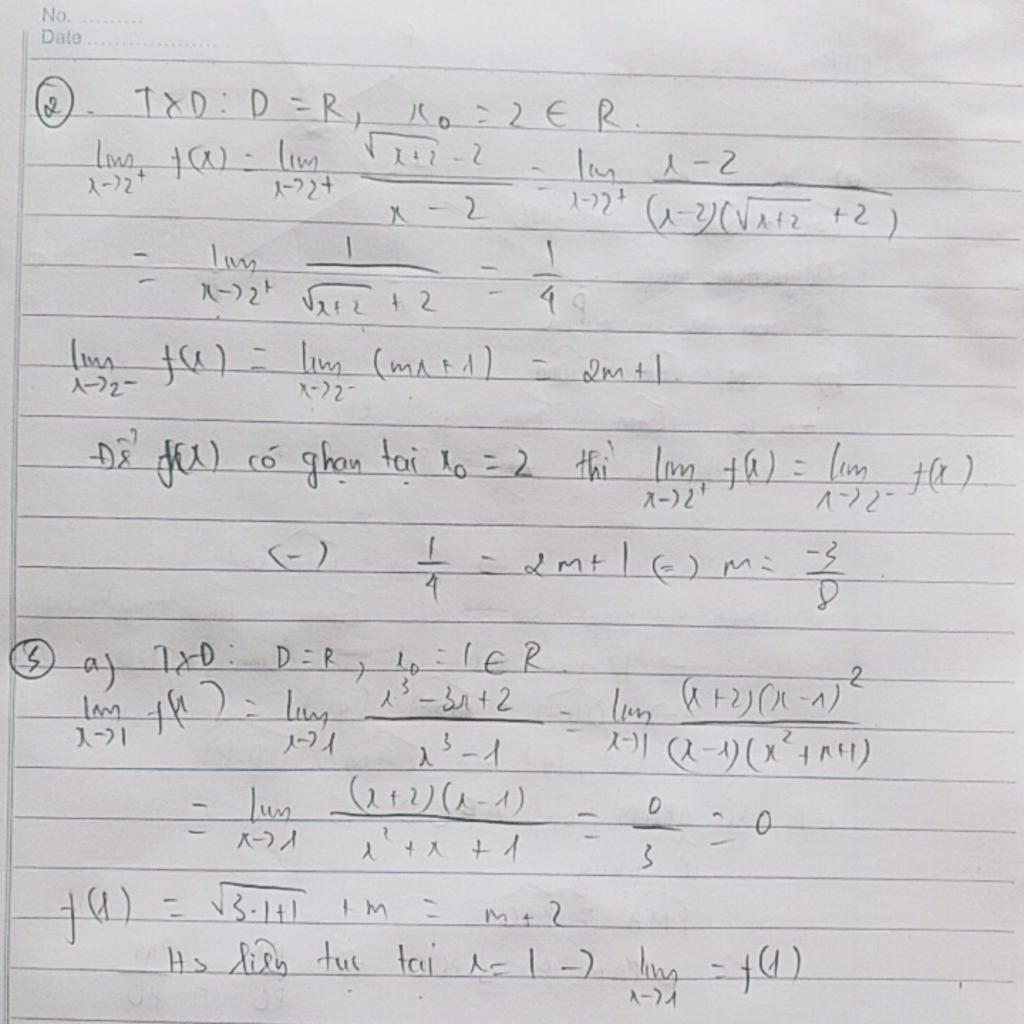 No. .........
Date ..................
②. TXD: D = R, x₀ = 2 ∈ R.
lim x→2⁺ f(x) = lim x→2⁺ (√(x+2) - 2)/(x - 2) = lim x→2⁺ (x - 2)/((x-2)(√(x+2) + 2))
= lim x→2⁺ 1/(√(x+2) + 2) = 1/4
lim x→2⁻ f(x) = lim x→2⁻ (mx + 1) = 2m+1.
Để f(x) có ghạn tại x₀ = 2 thì lim x→2⁺ f(x) = lim x→2⁻ f(x).
(=) 1/4 = 2m+1 (=) m = -3/8.
③ a) TXD: D = R, x₀ = 1 ∈ R.
lim x→1 f(x) = lim x→1 (x³ - 3x + 2)/(x³ - 1) = lim x→1 (x+2)(x-1)²/((x-1)(x²+x+1))
= lim x→1 (x+2)(x-1)/(x² + x + 1) = 0/3 = 0
f(1) = √(3·1+1) + m = m + 2
Hs liên tục tại x = 1 → lim x→1 = f(1)